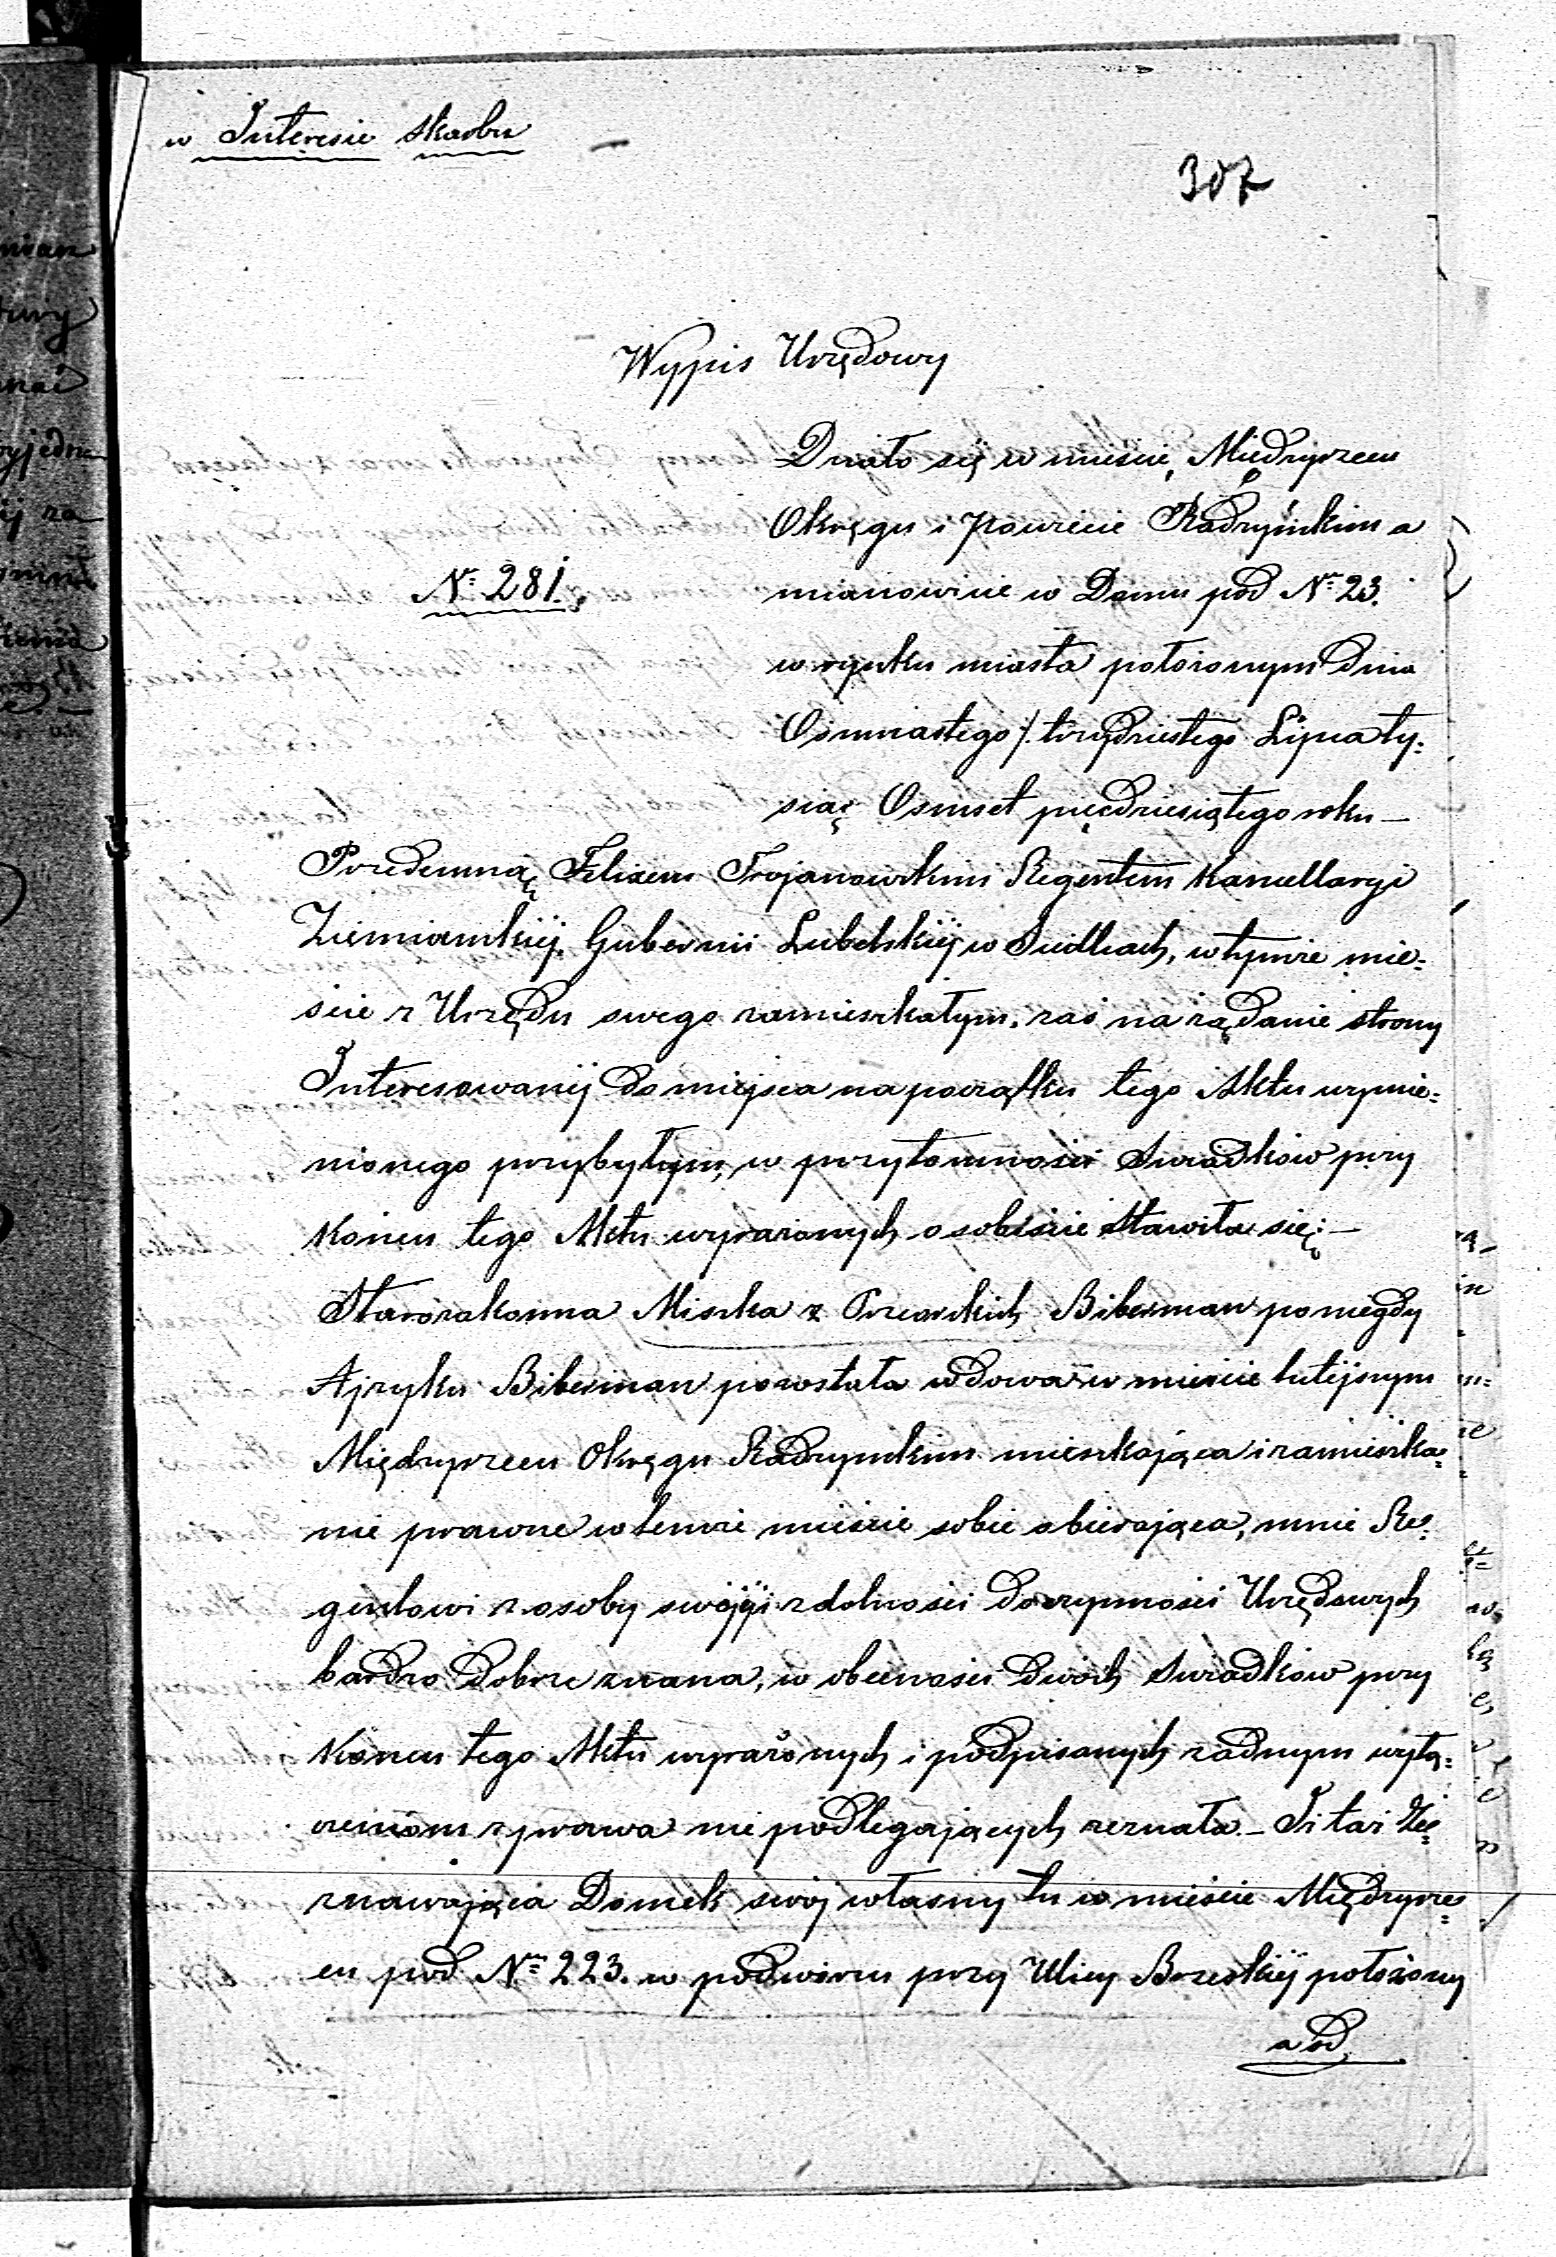 w Interesie Skarbu
307
Wypis Urzędowy
Działo się w mieście Międzyrzecu
Okręgu i Powiecie Radzyńskim a
№ 281.
mianowicie w Domu pod № 23.
w rynku miasta położonym dnia
Osmnastego /. trzydziestego Lipca ty=
siąc Osmset pięcdziesiątego roku —
Przedemną Felixem Trojanowskim Regentem Kancellaryi
Ziemiańskiéj Gubernii Lubelskiéj w Siedlcach, w tymże mie=
ście z Urzędu swego zamieszkałym, zaś na żądanie strony
Interesowanéj do miejsca na początku tego Aktu wymie=
nionego przybyłym, w przytomności Swiadków przy
końcu tego Aktu wyrażonych osobiście stawiła się: —
Starozakonna Miszka z Biberman poniegdy
Ajzyku Biberman pozostała wdowa w mieście tutéjszym
Międzyrzecu Okręgu Radzyńskim mieszkająca i zamieszka=
nie prawne w temże mieście sobie obierająca, mnie Re=
gentowi z osoby swojéj i zdolności do czynności Urzędowych
bardzo dobrze znana, w obecności dwóch Swiadków przy
końcu tego Aktu wyrażonych i podpisanych żadnym wyłą=
czeniom z prawa nie podlegających zeznała — Iż taż Ze=
znawająca Domek swój własny tu w mieście Międzyrze=
cu pod № 223. w podwórzu przy Ulicy Brzeskiéj położony
a od